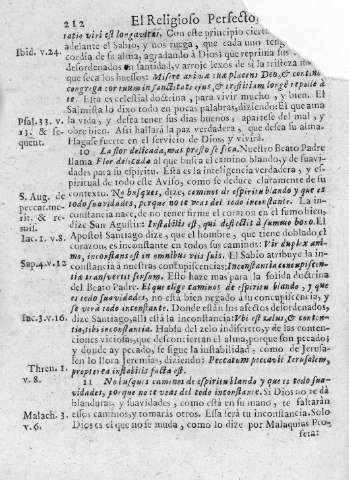 212 El Religioso Perfecto,
tatio viri est longævitas. Con este principio cierra
adelante el Sabio, y nos ruega, que cada uno tenga
Ibid. v.24. cordia de su alma, agradando à Dios que reprima sus
desordenados en santidad, y arroje lexos de sì la tristeza
que seca los huessos: Misere animæ tuæ placens Deo, & contine
congrega cor tuum in sanctitate ejus, & tristitiam longè repelle à
te. Esta es celestial doctrina, para vivir mucho, y bien. El
Salmista lo dixo todo en pocas palabras, diziendo: El que ama
Psal. 33. v. la vida, y desea tener sus dias buenos, apartese del mal, y
13. & se- obre bien. Assi hallarà la paz verdadera, que desea su alma.
quent. Hagase fuerte en el servicio de Dios, y vivirà.
10 La flor delicada, mas presto se seca. Nuestro Beato Padre
llama Flor delicada al que busca el camino blando, y de suavi-
dades para su espiritu. Esta es la inteligencia verdadera, y es-
piritual de todo este Aviso, como se deduce claramente de su
S. Aug. de contexto. No busques, dize, caminos de espiritu blando y que es
peccat. me- todo suavidades, porque no te veas del todo inconstante. La in-
rit. & re- constancia nace, de no tener firme el corazon en el sumo bien,
mis. dize San Agustin: Instabilis est, qui deflectit à summo bono. El
Iac. 1. v.8. Apostol Santiago dize, que el hombre que tiene doblado el
corazon, es inconstante en todos sus caminos: Vir duplex ani-
mo, inconstans est in omnibus viis suis. El Sabio atribuye la in-
Sap. 4. v. 12 constancia à nuestras concupiscencias; Inconstantia concupiscen-
tiæ transvertit sensum. Esto haze mas para la solida doctrina
del Beato Padre. El que elige caminos de espiritu blando, y que
es todo suavidades, no està bien negado à su concupiscencia, y
se verà todo inconstante. Donde estàn los afectos desordenados,
Iac. 3. v.16. dize Santiago, alli està la inconstancia: Ubi est zelus, & conten-
tio, ibi inconstantia. Habla del zelo indiscreto, y de las conten-
ciones viciosas, que desconciertan el alma, porque son pecados
y donde ay pecado, se sigue la instabilidad, como de Jerusa-
len lo llora Jeremias, diziendo: Peccatum peccavit Ierusalem,
Thren. 1. propterea instabilis facta est.
v. 8. 11 No busques caminos de espiritu blando y que es todo sua-
vidades, porque no te veas del todo inconstante. Si Dios no te dà
blanduras, y suavidades, como està en su mano, te faltaràn
Malach. 3. essos caminos, y tomaràs otros. Essa serà tu inconstancia. Solo
v. 6. Dios es el que no se muda, como lo dize por Malaquias Pro-
feta: